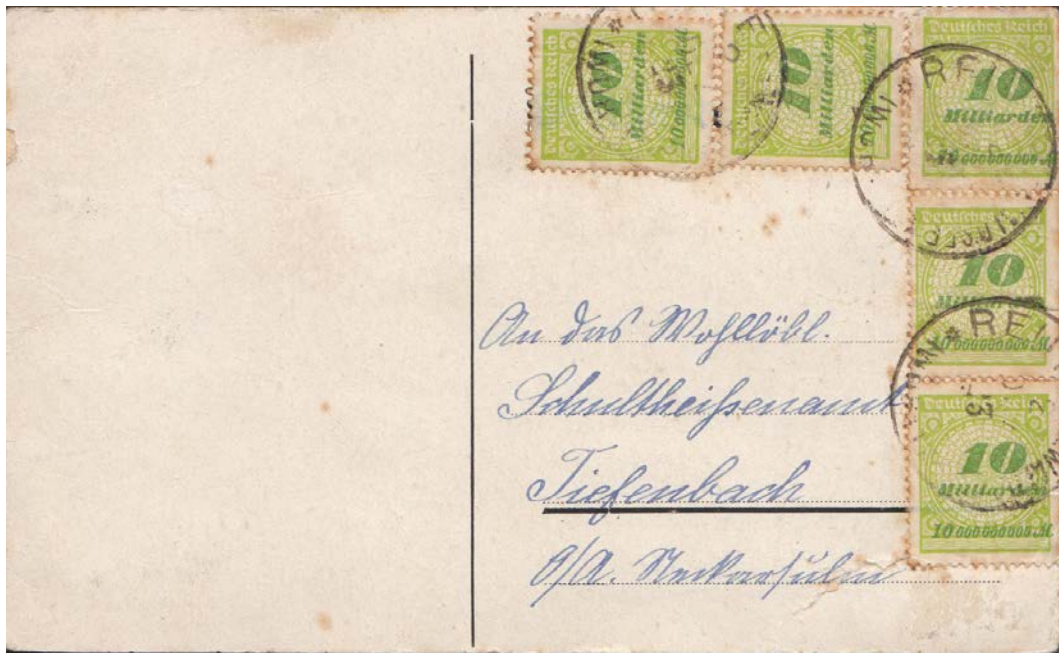 Deutsches Reich
10
Milliarden
10000000000 M
Deutsches Reich
10
Milliarden
10000000000 M
Deutsches Reich
10
Milliarden
10000000000 M
Deutsches Reich
10
Milliarden
10000000000 M
Deutsches Reich
10
Milliarden
10000000000 M
An das Wohllöbl.
Schultheißenamt
Tiefenbach
O/A. Neckarsulm